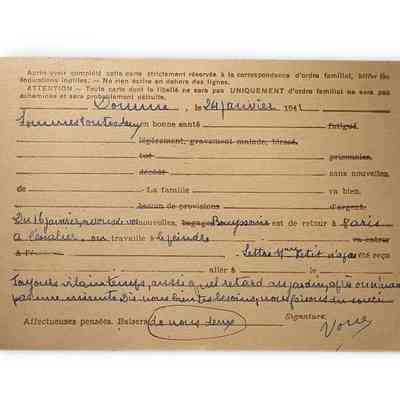 Après avoir complété cette carte strictement réservée à la correspondance d'ordre familial, biffer les
indications inutiles. — Ne rien écrire en dehors des lignes.
ATTENTION — Toute carte dont le libellé ne sera pas UNIQUEMENT d'ordre familial ne sera pas
acheminée et sera probablement détruite.
Domme, le 24 janvier 1941
Sommes toutes deux en bonne santé fatigué.
légèrement, gravement malade, blessé.
tué prisonnier.
décédé sans nouvelles.
de La famille va bien.
besoin de provisions d'argent.
Du 16 janvier, de nouvelles, bagages est de retour à Paris
à travaille à
à l'é Lettre reçu
aller à le
Toujours vilain temps, aussi quel retard au jardin,
pas une minute Dis nous
Affectueuses pensées. Baisers de nous deux Signature.